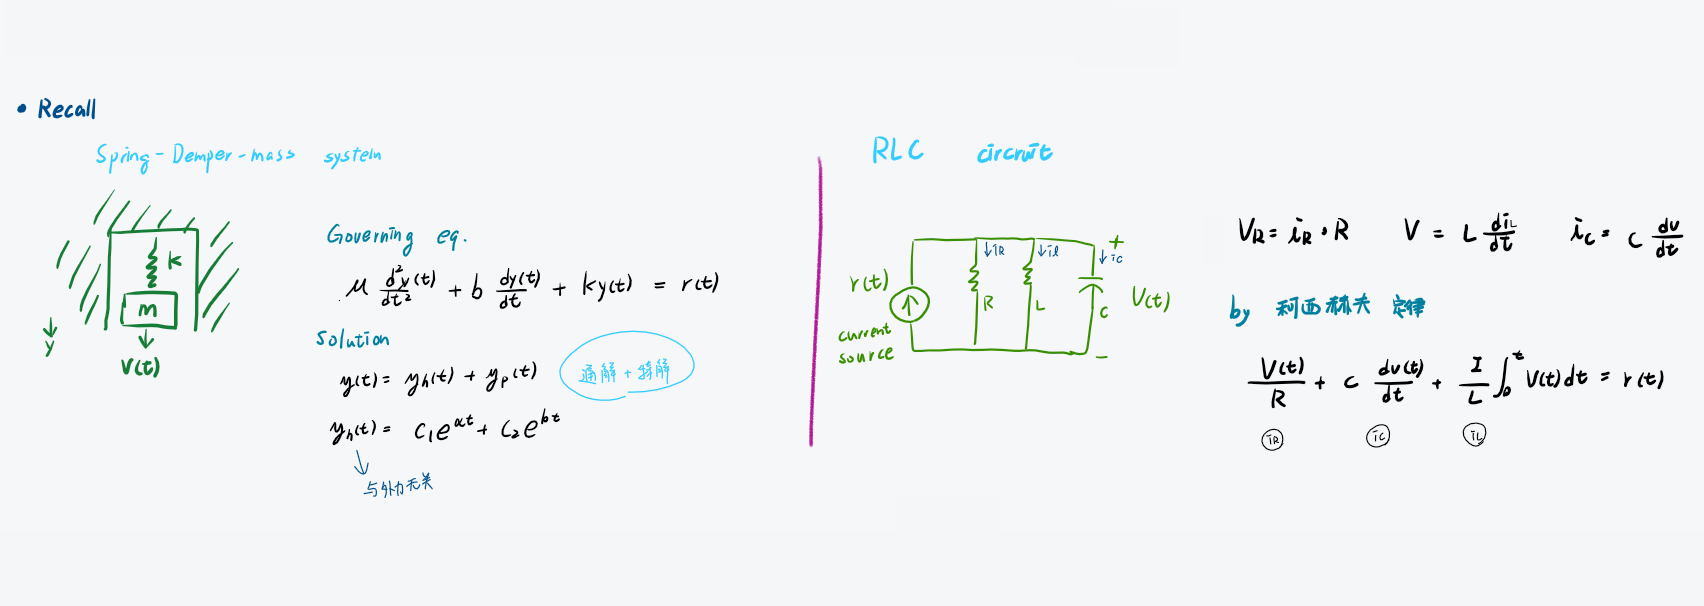 • Recall
Spring-Demper-mass system
K
m
y
V(t)
Governing eq.
M d²y(t)/dt² + b dy(t)/dt + ky(t) = r(t)
Solution
y(t) = yh(t) + yp(t)
通解 + 特解
yh(t) = C1e^αt + C2e^bt
与外力无关
RLC circruit
r(t)
current
source
iR
R
il
L
+
ic
C
V(t)
−
VR = iR · R V = L diL/dt ic = C dv/dt
by 柯西赫夫 定律
V(t)/R + C dv(t)/dt + I/L ∫0^t V(t)dt = r(t)
iR ic iL